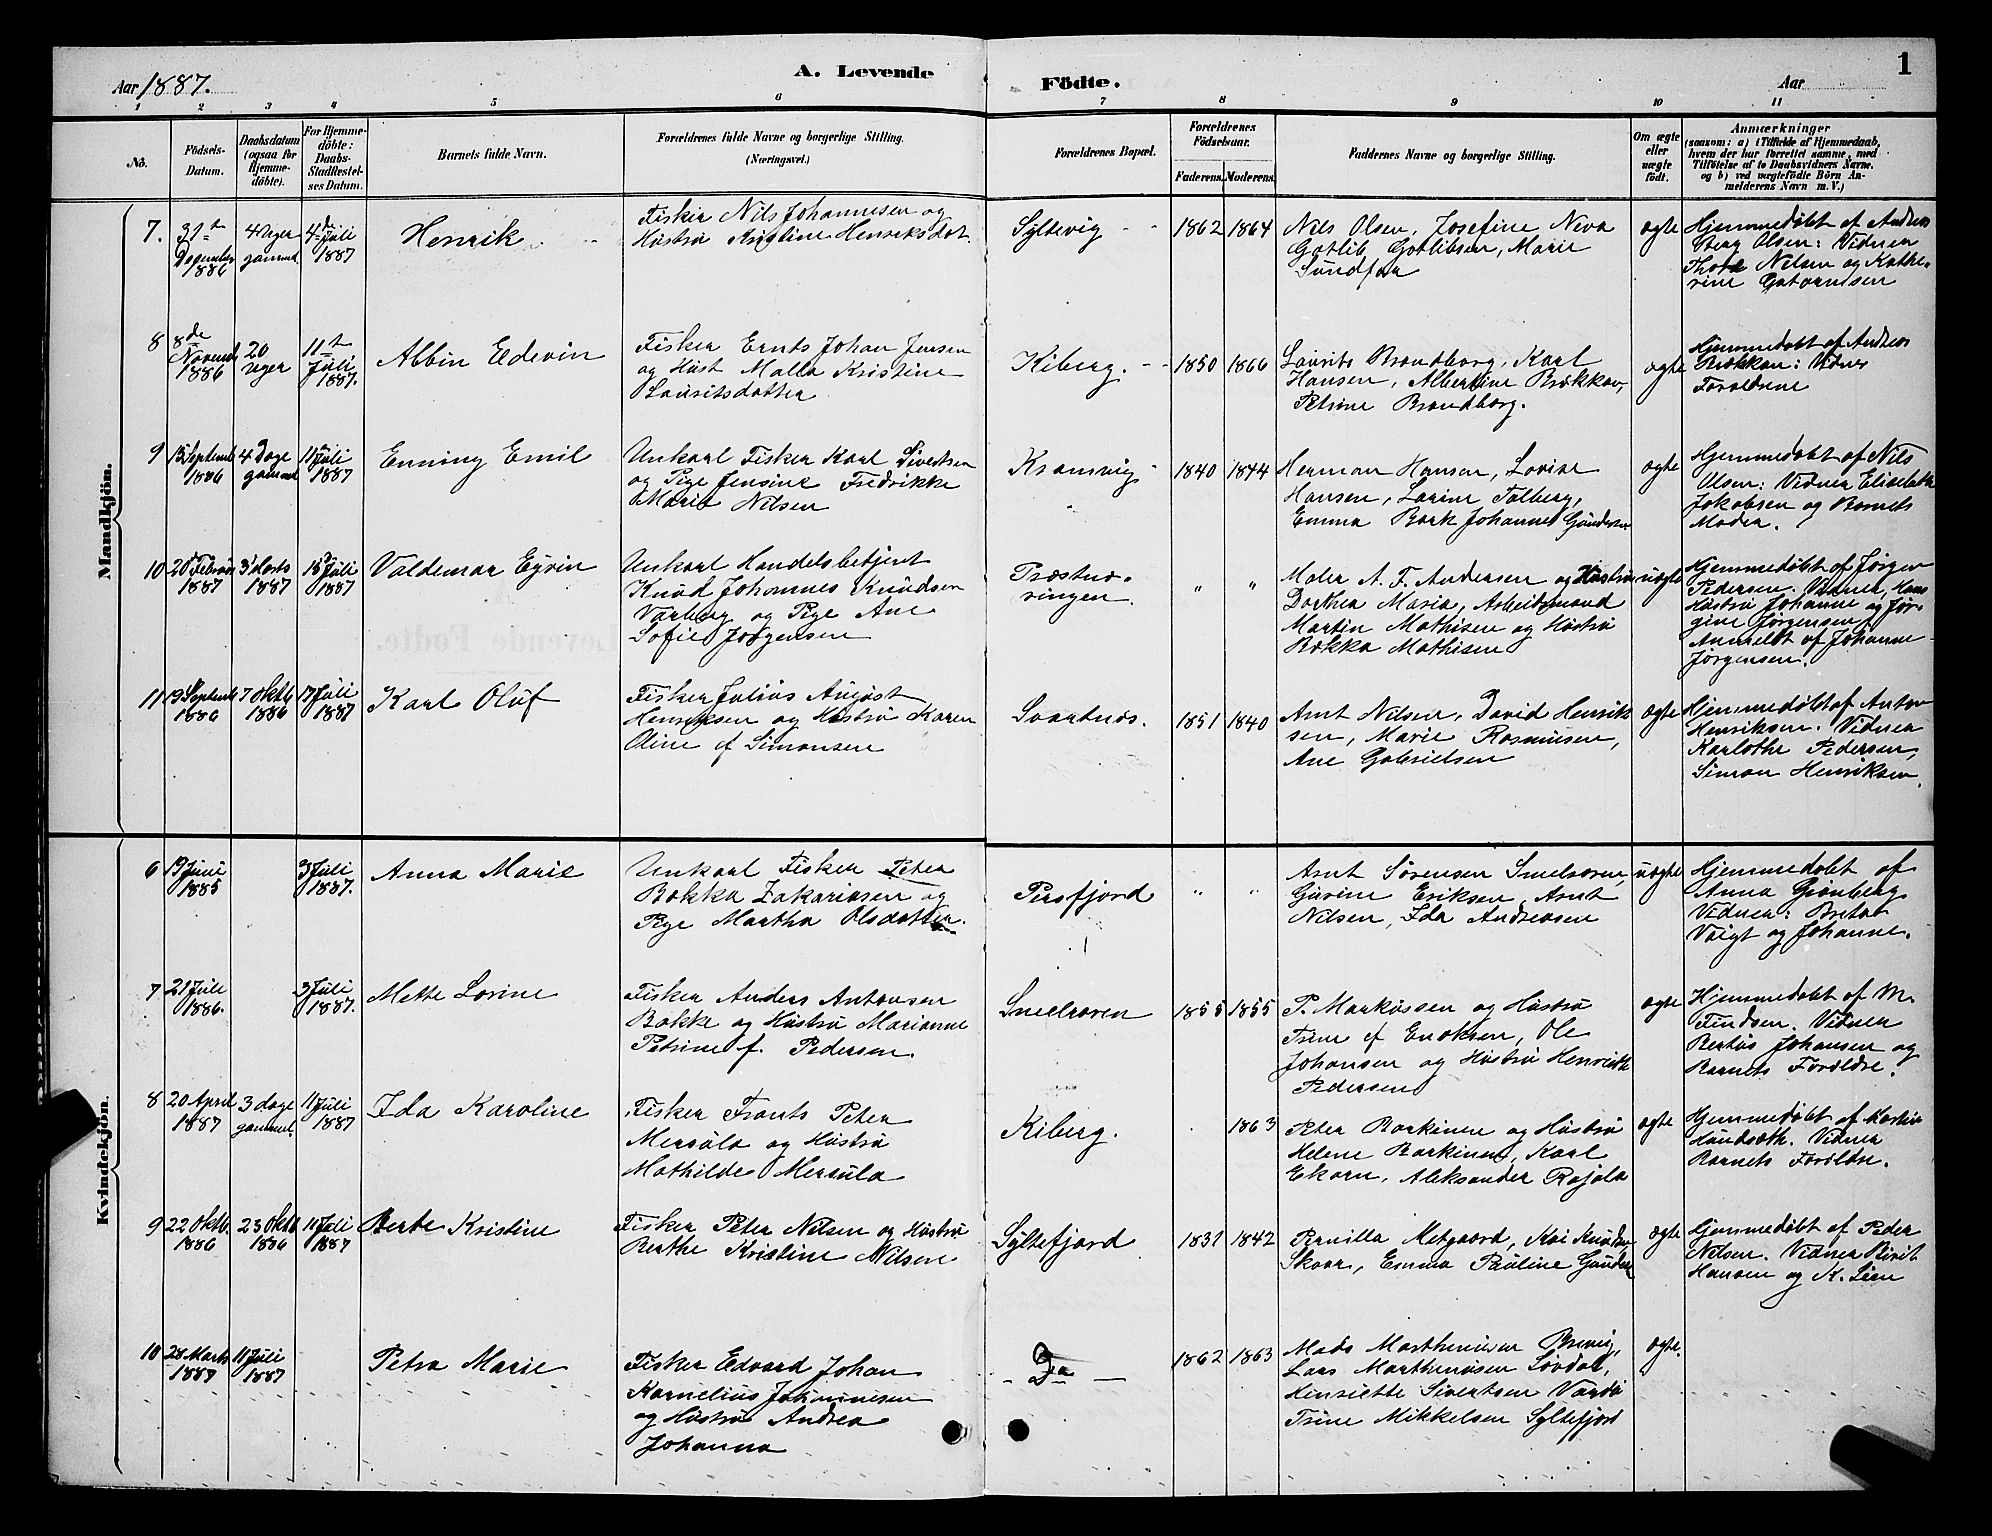 1
Aar 1887.
A. Levende
Födte.
Aar
1 2 3 4 5 6 7 8 9 10 11
No.
Födsels-
Datum.
Daabsdatum
(ogsaa for
Hjemme-
döbte).
For Hjemme-
döbte:
Daabs-
Stadfæstel-
ses Datum.
Barnets fulde Navn.
Forældrenes fulde Navne og borgerlige Stilling.
(Næringsvei.)
Forældrenes Bopæl.
Forældrenes
Födselsaar.
Faderens. Moderens.
Faddernes Navne og borgerlige Stilling.
Om ægte
eller
uægte
födt.
Anmærkninger
(saasom: a) i Tilfælde af Hjemmedaab,
hvem der har forrettet samme, med
Tilföielse af to Daabsvidners Navne.
og b) ved uægtefödte Börn An-
melderens Navn m. V.)
Mandkjön.
7.
31te
December
1886
4 Uger
gammel
4de
Juli
1887
Henrik
Fisker Nils Johannesen og
Hustru Henriksdat.
Syltevig
1862 1864
Nils Olsen, Josefine Neva
Gotlib Gotlibsen, Marie
Sundfær
ægte
Hjemmedøbt af Andreas
Berg Olsen: Vidner
Nilsen og Kathe-
rine
8
8de
Novemb
1886
20
Uger
11te
Juli
1887.
Albin Edevin
Fisker Ernts Johan Jensen
og Hust Malla Kristine
Lauritsdatter
Kiberg.
1850 1866
Laurits Brandborg, Karl
Hansen, Albertine Brækkan,
Petrine Brandborg.
ægte
Hjemmedøbt af Andreas
Brækkan: Vidner
Forældrene
9
Septemb
1886
4 Dage
gammel
11 Juli
1887
Enning Emil
Unkarl Fisker Karl Sivertsen
og Pige Jensine Fredrikke
Marie Nilsen
Kramvig
1840 1844
Herman Hansen, Lovise
Hansen, Lorine Tolberg,
Emma Bark Johanne Gundersen
ægte
Hjemmedøbt af Nils
Olsen: Vidner Elisabeth
Jakobsen og Barnets
Moder.
10
20 Februar
1887
3 Marts
1887
Juli
1887
Valdemar Eyvin
Unkarl Handelsbetjent
Knud Johannes Knudsen
Varberg og Pige Ane
Sofie Jørgensen
Præstnæ-
ringen.
" "
Maler A. F. Andersen og Hustru
Dorthea Maria, Arbeidsmand
Martin Mathisen og Hustru
Bokka Mathisen
uægte
Hjemmedøbt af Jørgen
Pedersen. Vidner, Hans
Hustru Johanne og Jør-
gine Jørgensen
Anmeldt af Johanne
Jørgensen.
11
19 Septemb
1886
7 Oktb
1886
17 Juli
1887
Karl Oluf
Fisker Julius August
Henriksen og Hustru Karen
Oline f Simonsen
Svartnæs.
1851 1840
Arnt Nilsen, David Henrik
sen, Marie Rasmusen,
Ane Gabrielsen
ægte
Hjemmedøbt af Anton
Henriksen. Vidner
Karlotha Pedersen,
Simon Henriksen.
Kvindekjön.
6
19 Juni
1885
3 Juli
1887.
Anna Marie
Unkarl Fisker Peter
Bokka Zakariasen og
Pige Martha Olsdatter.
Persfjord
" "
Arnt Sørensen Smelroren,
Gurine Eriksen, Arnt
Nilsen, Ida Andreasen
uægte
Hjemmedøbt af
Anna Grønberg
Vidner: Bretae
Voigt og Johanne.
7
21 Juli
1886.
3 Juli
1887.
Mette Lorine
Fisker Anders Antonsen
Bakke og Hustru Marianne
Petrine f. Pedersen.
Smelroren
1855 1855
P. Markussen og Hustru
Trine f Enoksen, Ole
Johansen og Hustru Henriette
Pedersen
ægte
Hjemmedøbt af M.
Findsen. Vidner
Bertus Johansen og
Barnets Forældre.
8
20 April
1887
3 dage
gammel.
11 Juli
1887
Ida Karoline
Fisker Frants Peter
Mersula og Hustru
Mathilde Mersula
Kiberg.
1863
Peter Barkinen og Hustru
Helene Barkinen, Karl
Ekorn, Aleksander Rajala
ægte
Hjemmedøbt af
Vidner
Barnets Forældre.
9
22 Oktb.
1886
23 Oktb
1886
11 Juli
1887
Berte Kristine
Fisker Peter Nilsen og Hustru
Berthe Kristine Nilsen
Syltefjord
1831 1842
Pernilla Metgaard, Kai Knudsen
Skaar, Emma Pauline Gunders
ægte
Hjemmedøbt af Peder
Nilsen. Vidner Birit
Hansen og K. Lien
10
28 Marts
1887
11 Juli
1887
Petra Marie
Fisker Edvard Johan
Kornelius Johannesen
og Hustru Andrea
Johanna
Do
1862 1863
Mads Marthenusen
Lars Marthenusen Løvdal,
Henriette Sivertsen Vardø
Trine Mikkelsen Syltefjord
ægte.